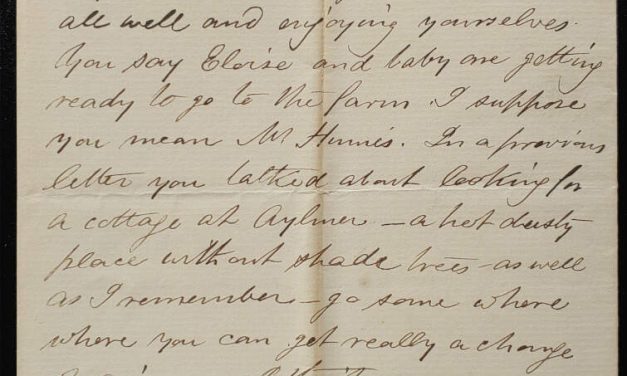 all well and enjoying yourselves.
You say Eloise and baby are getting
ready to go to the farm. I suppose
you mean Mr
In a previous
letter you talked about looking for
a cottage at Aylmer - a hot dusty
place without shade trees - as well
as I remember - go some where
where you can get really a change